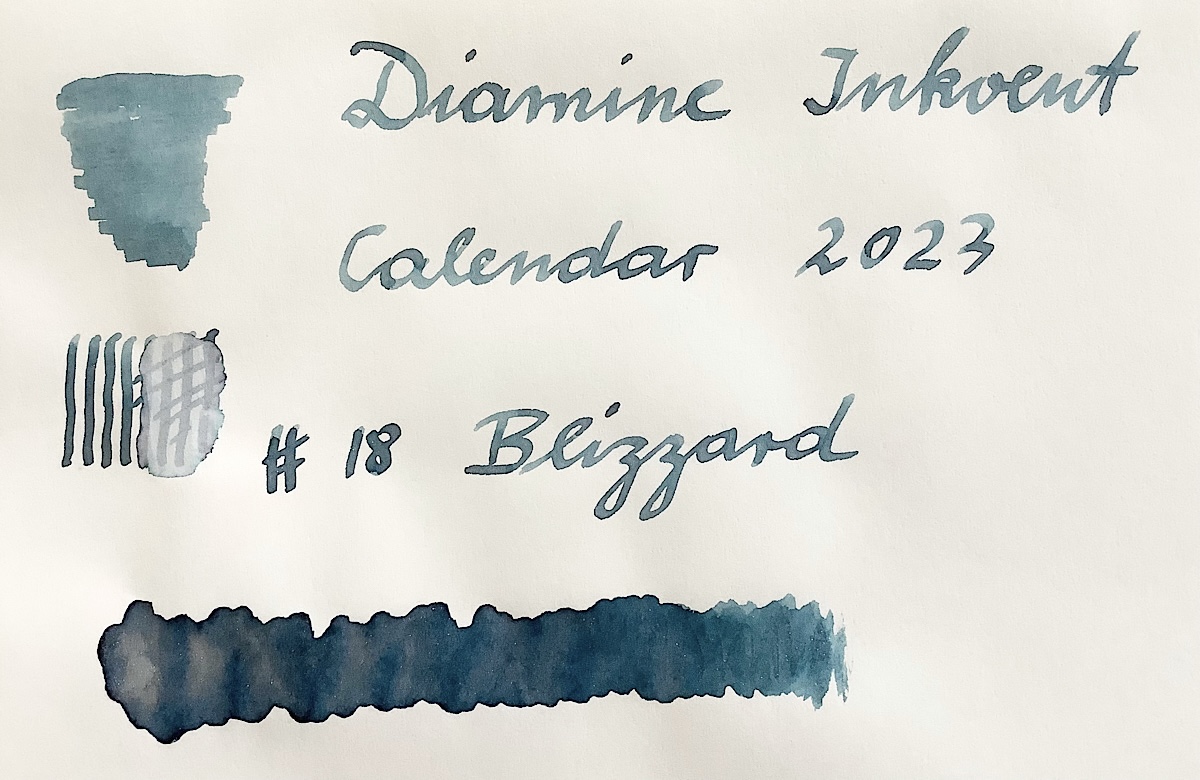 Diamine Inkvent
Calendar 2023
# 18 Blizzard